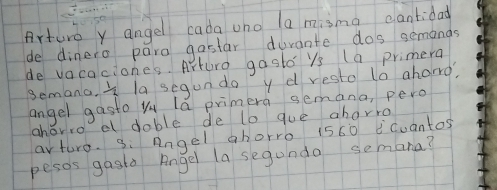 Arturo y angel cada uno la misma cantidad
de dinero para gastar durante dos semanas
de vacaciones. Arturo gastó 1/3 la primera
semana, 1/2 la segunda y el resto lo ahorró.
angel gasto 1/4 la primera semana, pero
ahorro el doble de lo que ahorro
arturo. si Angel ahorro 1560 ¿cuantos
pesos gasto Angel la segunda semana?